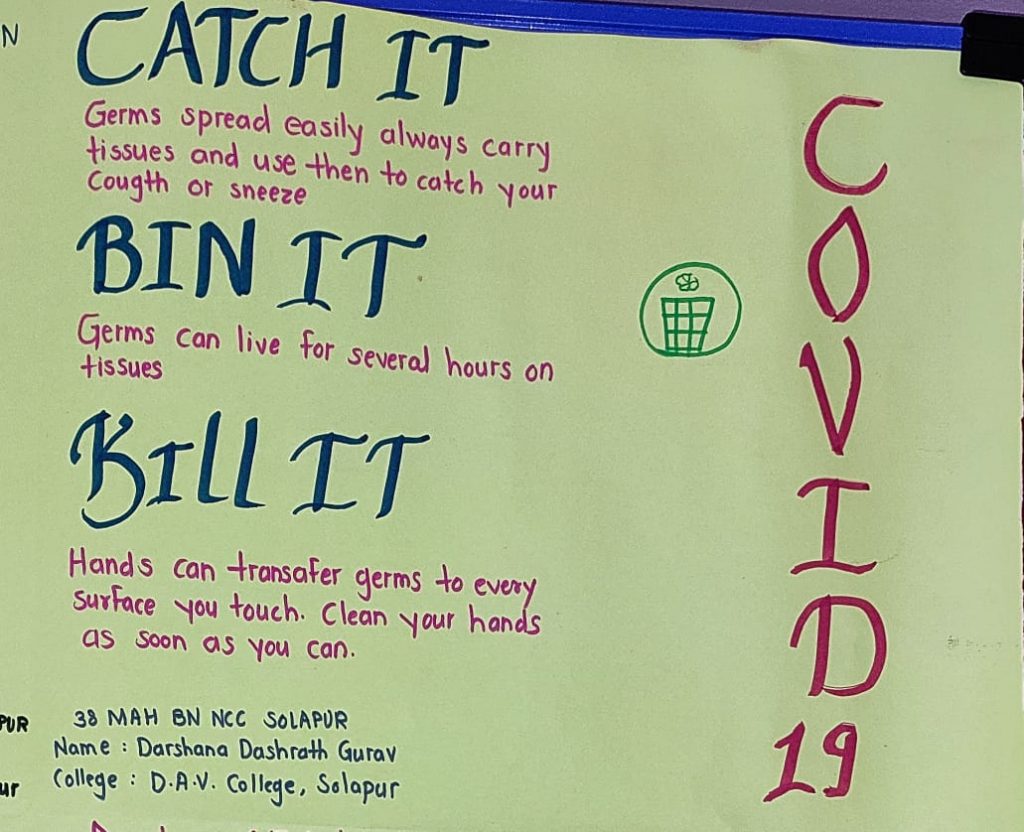 N
CATCH IT
Germs spread easily always carry
tissues and use then to catch your
Cougth or sneeze
BIN IT
Germs can live for several hours on
tissues
Kill IT
Hands can transafer germs to every
surface you touch. Clean your hands
as soon as you can.
C
O
V
I
D
19
PUR
38 MAH BN NCC SOLAPUR
Name : Darshana Dashrath Gurav
ur
College : D.A.V. College, Solapur